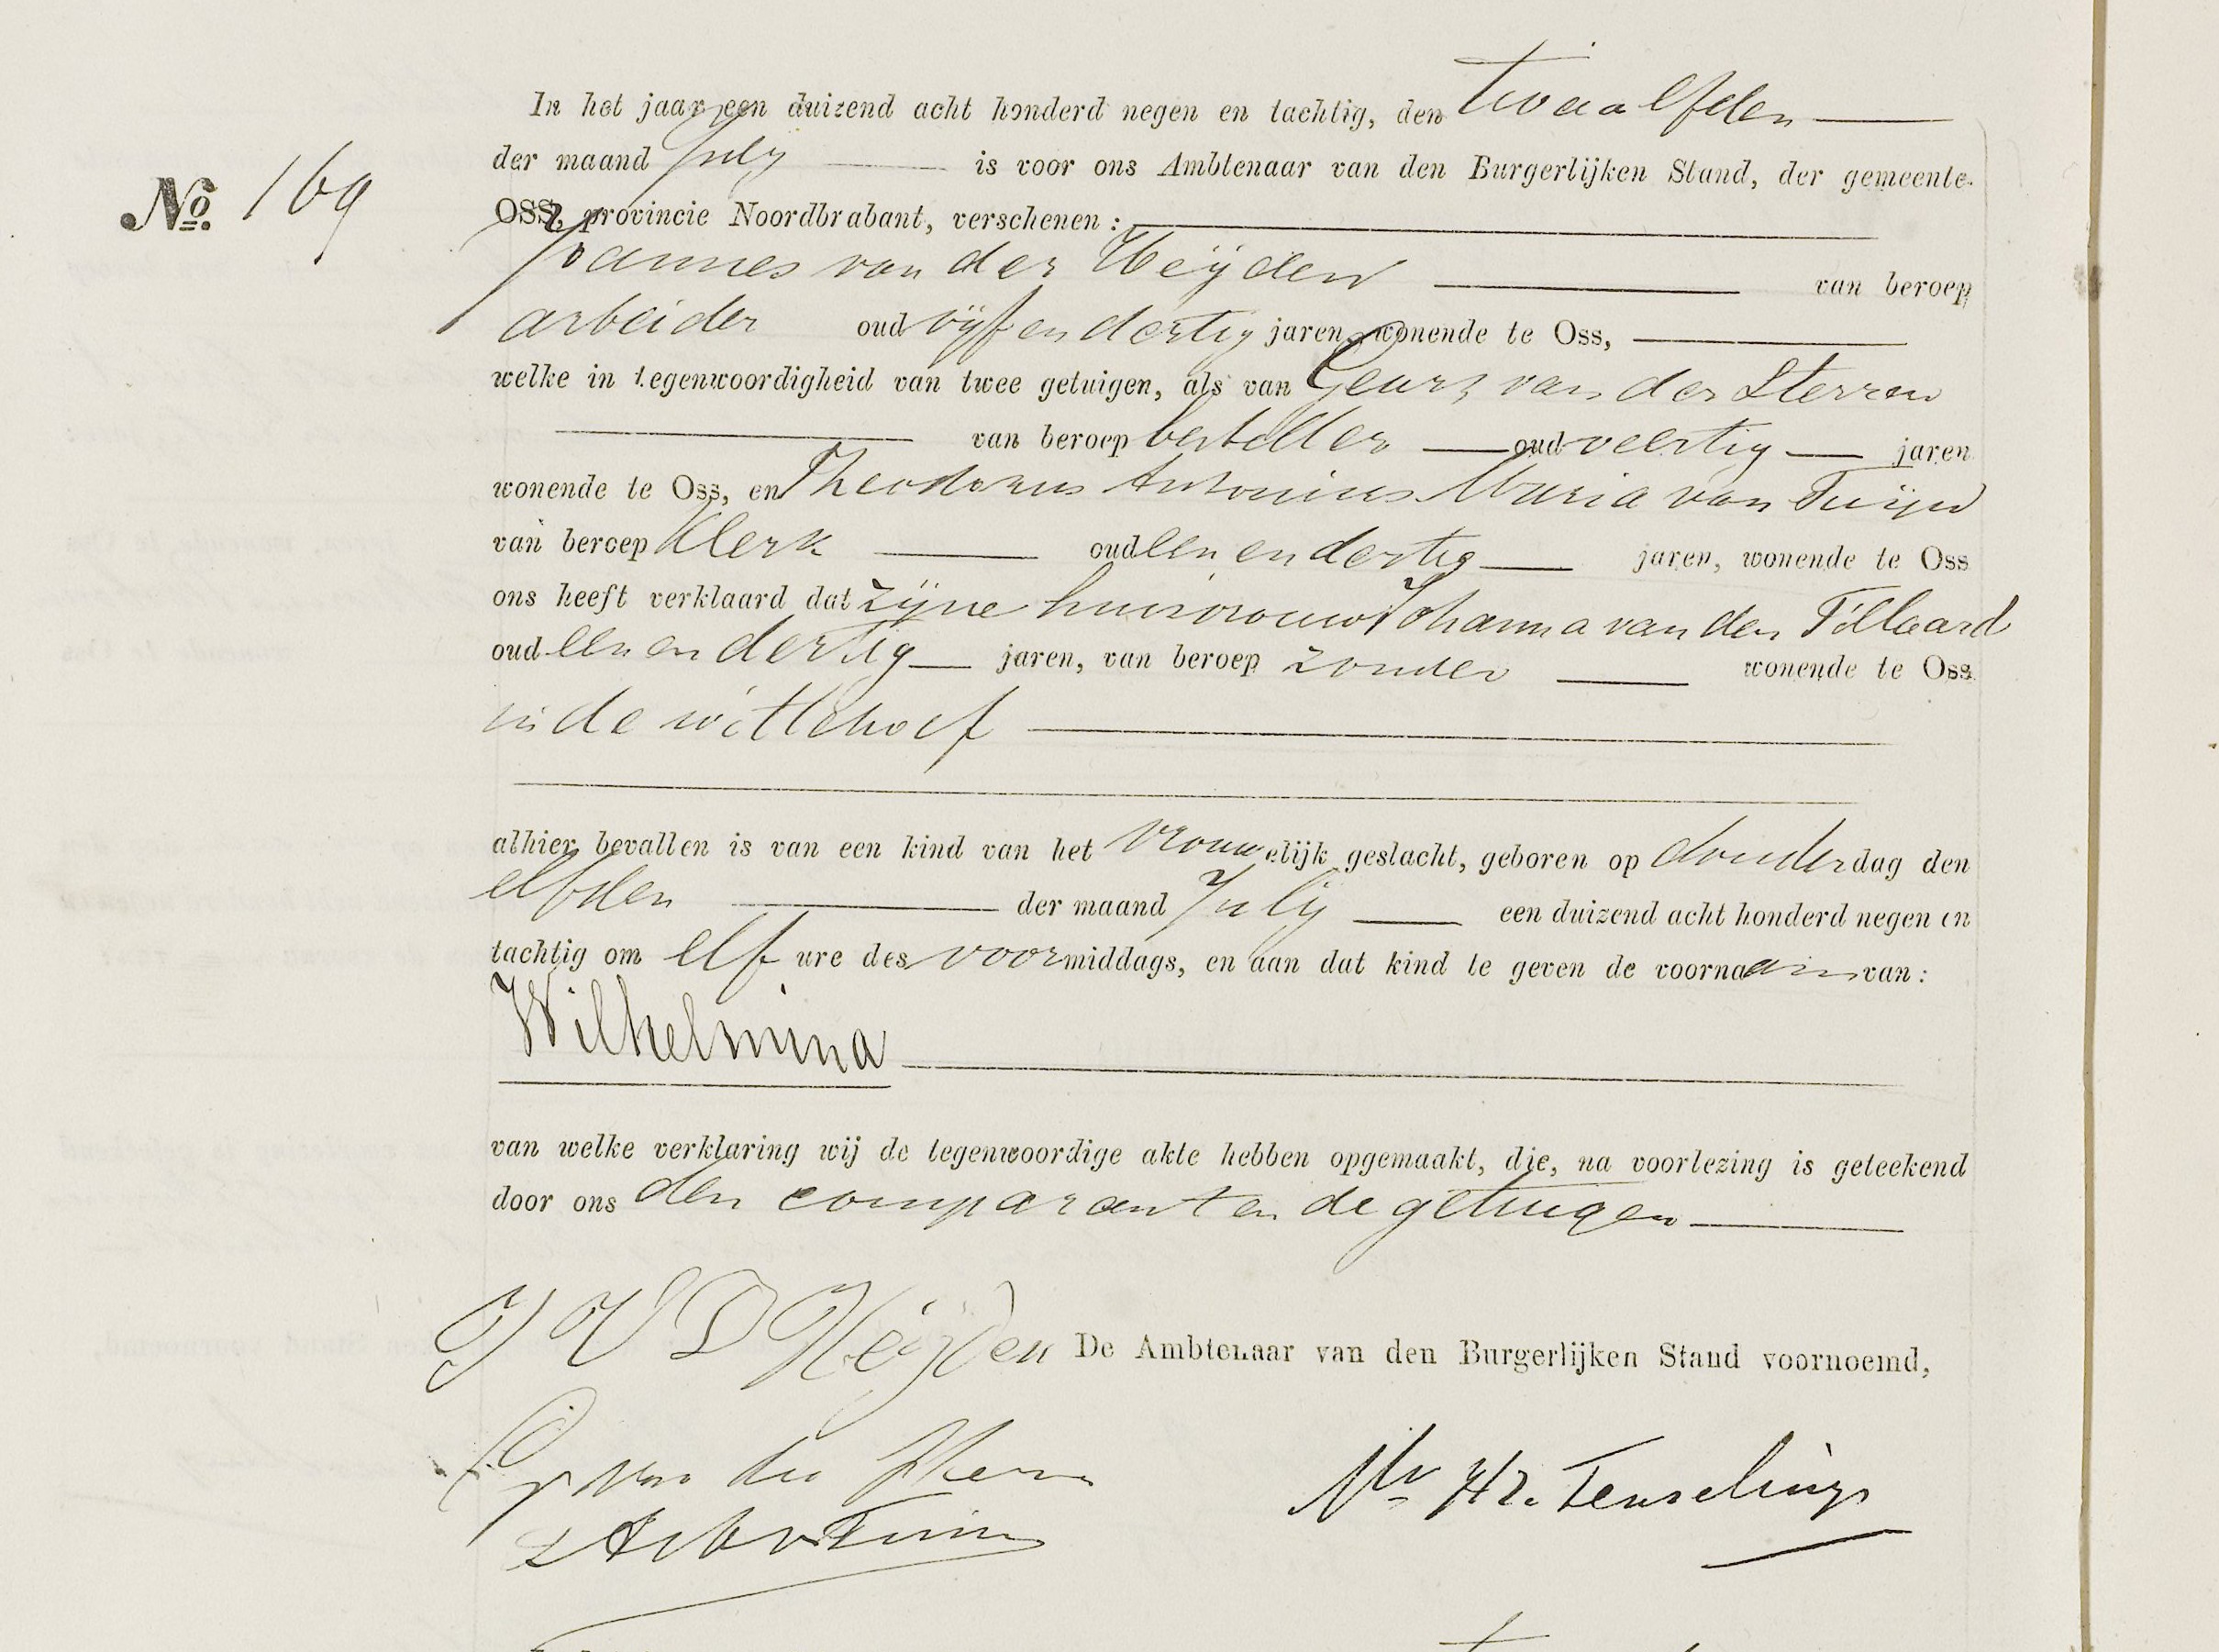 In het jaar een duizend acht honderd negen en tachtig, den twaalfden
der maand July is voor ons Ambtenaar van den Burgerlijken Stand, der gemeente
No. 169
OSS, provincie Noordbrabant, verschenen:
Joannes van der Heijden van beroep
arbeider oud vijf en dertig jaren, wonende te Oss,
welke in tegenwoordigheid van twee getuigen, als van Geurt van der Sterren
van beroep besteller oud veertig jaren
wonende te Oss, en Theodorus Antonius Maria van Tuijn
van beroep Klerk oud een en dertig jaren, wonende te Oss
ons heeft verklaard dat zijne huisvrouw Johanna van den Tillaard
oud een en dertig jaren, van beroep zonder wonende te Oss
in de wittehoef
alhier bevallen is van een kind van het vrouwelijk geslacht, geboren op donderdag den
elfden der maand July een duizend acht honderd negen en
tachtig om elf ure des voormiddags, en aan dat kind te geven de voornaam van:
Wilhelmina
van welke verklaring wij de tegenwoordige akte hebben opgemaakt, die, na voorlezing is geteekend
door ons den comparant en de getuigen
J V D Heijden De Ambtenaar van den Burgerlijken Stand voornoemd,
G van der Sterren